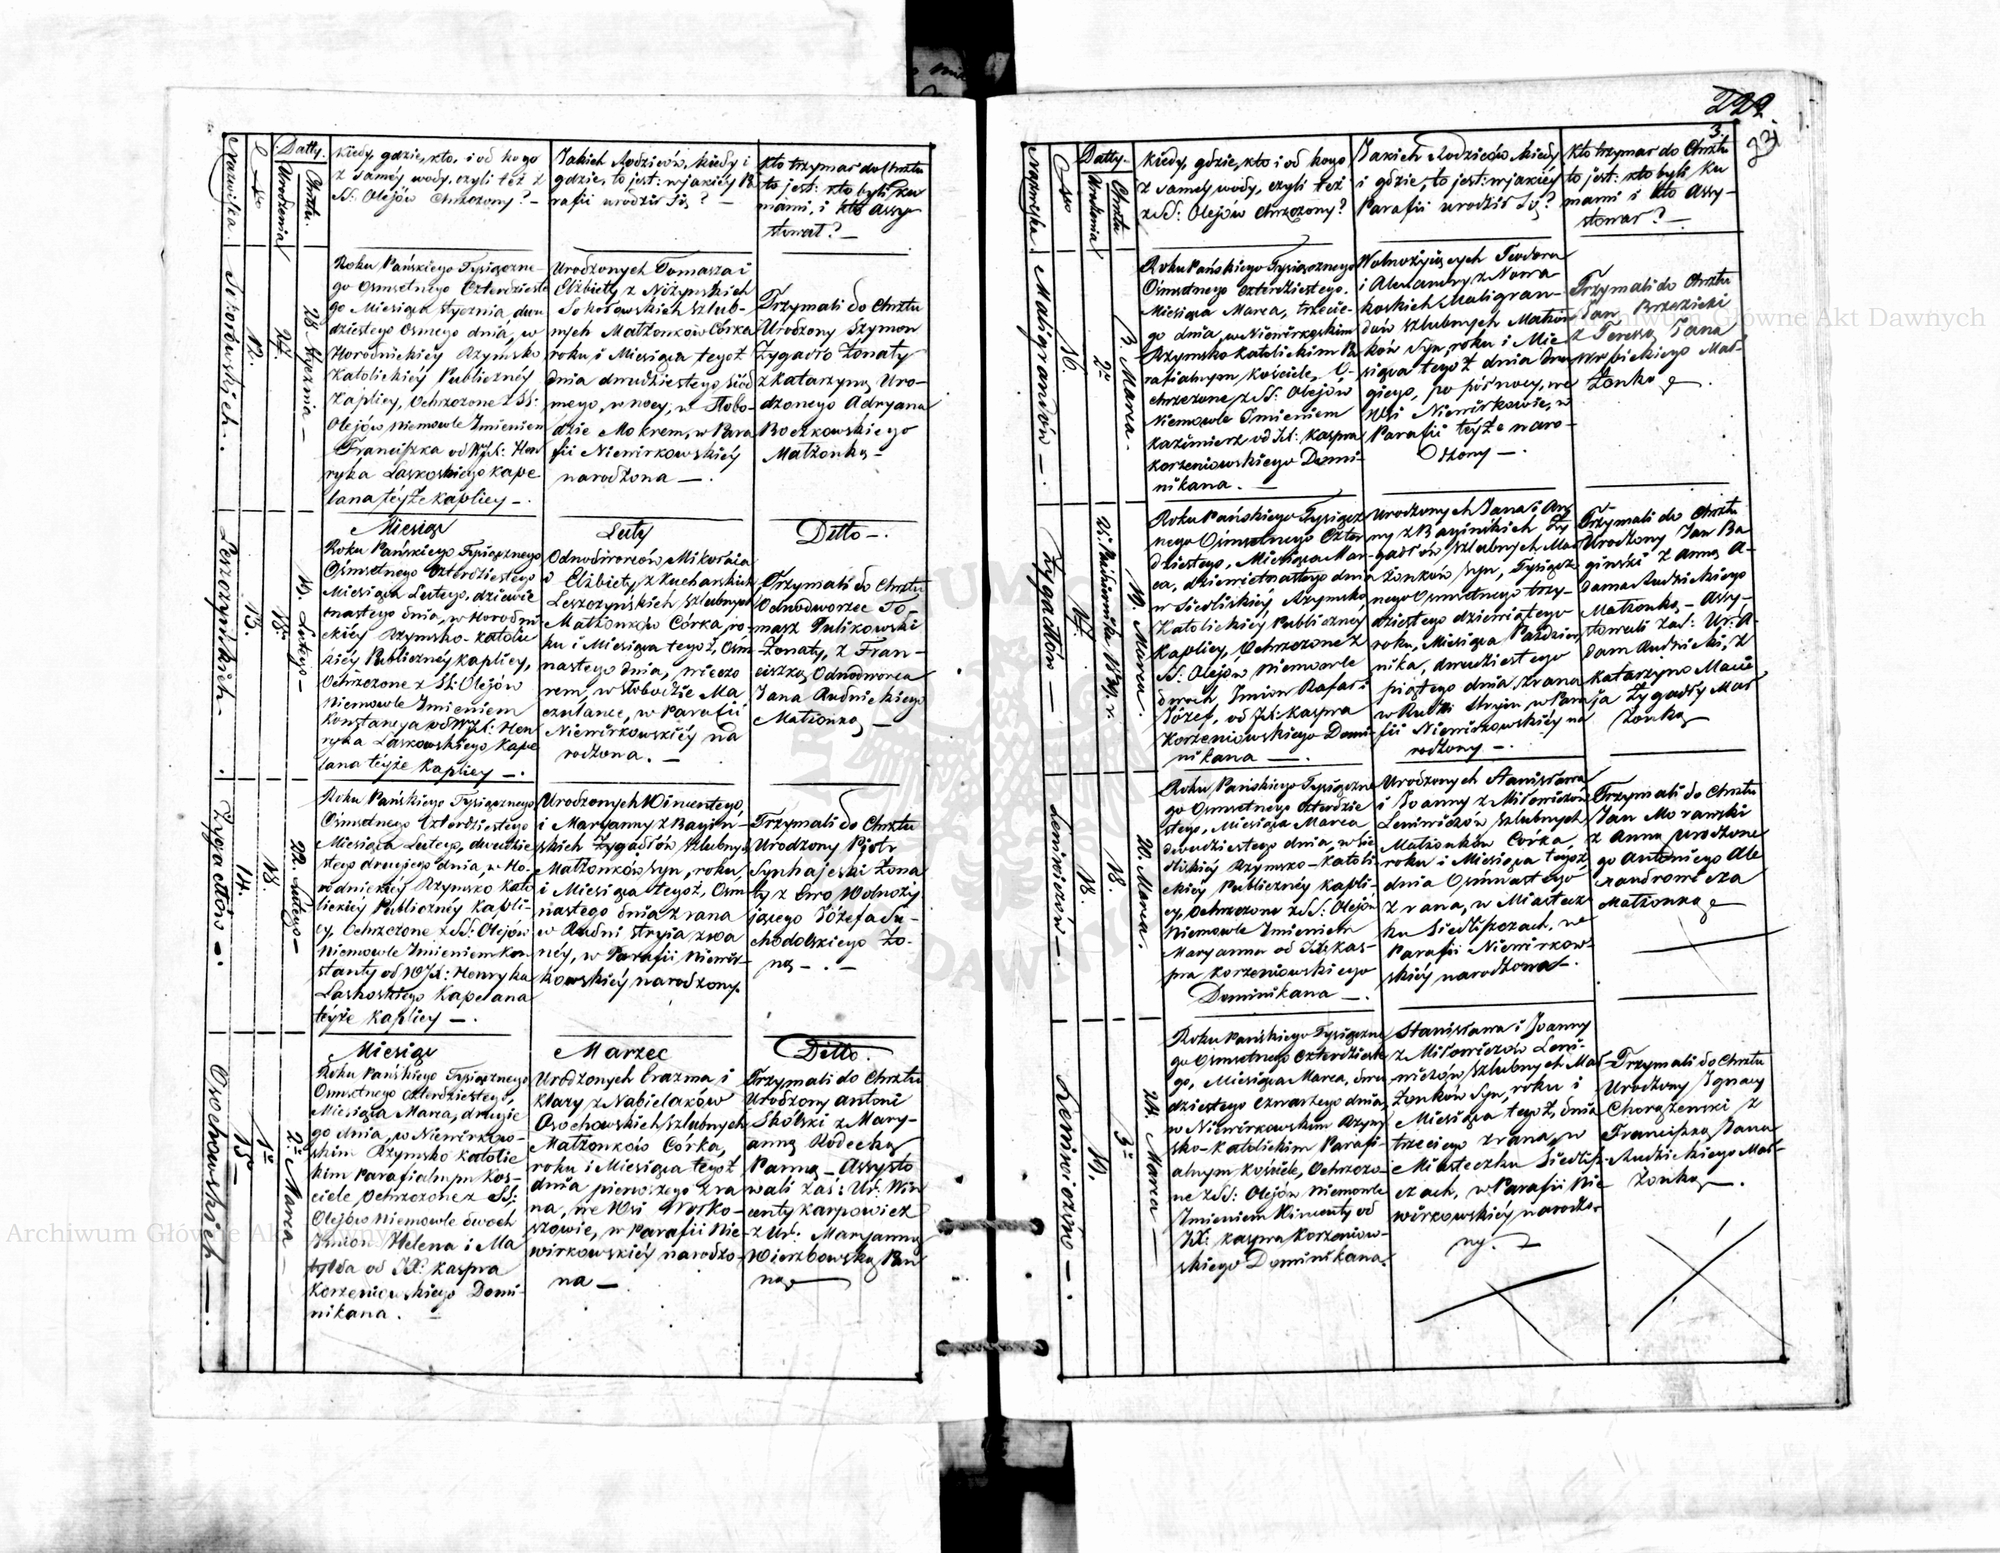 222.
3.
Nazwiska.
No
Datty.
Urodzenia
Chrztu.
Kiedy, gdzie, kto, i od kogo
z samey wody, czyli też z
SS: Olejów Chrzczony? —
Jakich Rodziców, kiedy i
gdzie, to jest: w jakiéy Pa
rafii urodził się? —
Kto trzymał do Chrztu
to jest: kto byli Ku
mami, i kto assy
stował? —
Sokołowskich.
12.
27.
28. Stycznia —
Roku Pańskiego Tysiączne-
go Osmsetnego Czterdzieste
go Miesiąca Stycznia, dwu
dziestego Osmego dnia, w
Horodnickiéy Rzymsko
Katolickiéy Publicznéy
Kaplicy, Ochrzczone z SS:
Olejów Niemowle Imieniem
Franciszka od WJX: Hen
ryka Laskoskiego Kape
lana téyże Kaplicy —.
Urodzonych Tomasza i
Elżbiety z Niżynskich
Sokołowskich Szlub-
nych Małżonków Córka
roku i Miesiąca tegoż
dnia dwudziestego Siód
mego, w nocy, w Słobo-
dzie Mokrem, w Para
fii Niewirkowskiéy
narodzona —.
Trzymali do Chrztu
Urodzony Szymon
Zygadło Żonaty
z Katarzyną Uro-
dzonego Adryana
Boczkowskiego
Małżonką —
Leszczyńskich.
13.
18.
19. Lutego —
Miesiąc
Roku Pańskiego Tysiącznego
Osmsetnego Czterdziestego
Miesiąca Lutego, dziewię
tnastego dnia, w Horodni
ckiéy Rzymsko-Katolic
kiéy Publicznéy Kaplicy,
Ochrzczone z SS: Olejów
Niemowle Imieniem
Konstancya od WJX: Hen
ryka Laskowskiego Kape
lana téyże Kaplicy —.
Luty
Odnodworców Mikołaia
i Elżbiety z Kucharskich
Leszczyńskich Szlubnych
Małżonków Córka, ro-
ku i Miesiąca tegoż, Osm
nastego dnia, wieczo
rem, w Słobodzie Ma
czulance, w Parafii
Niewirkowskiéy na
rodzona. —
Ditto —.
Trzymali do Chrztu
Odnodworzec To-
masz Pulikowski
Żonaty, z Fran-
ciszką Odnodworca
Jana Rudnickiego
Małżonką —
Zygadłów —.
14.
18.
22. Lutego —
Roku Pańskiego Tysiącznego
Osmsetnego Czterdziestego
Miesiąca Lutego, dwudzie
stego drugiego dnia, w Ho-
rodnickiéy Rzymsko Kato
lickiéy Publicznéy Kapli-
cy, Ochrzczone z SS: Olejów
Niemowle Imieniem Kon-
stanty od WJX: Henryka
Laskoskiego Kapelana
téyże Kaplicy —.
Urodzonych Wincentego,
i Maryanny z Bagiń-
skich Zygadłów Szlubnych
Małżonków Syn, roku,
i Miesiąca tegoż, Osm
nastego dnia z rana
w Rudni Stryia zwa
néy, w Parafii Niewir-
kowskiéy narodzony.
Trzymali do Chrztu
Urodzony Piotr
Synhajeski Żona
ty z Ewą Wolnoży
jącego Józefa Su-
chodolskiego Żo-
ną — . —
Osochowskich —.
15.
1o
2o Marca —
Miesiąc
Roku Pańskiego Tysiącznego
Osmsetnego Czterdziestego,
Miesiąca Marca, drugie
go dnia, w Niewirkow-
skim Rzymsko Katolic
kim Parafialnym Kos-
ciele Ochrzczone z SS:
Olejów Niemowle dwoch
Imion Helena i Ma
tylda od JX: Kaspra
Korzeniowskiego Domi-
nikana.
Marzec
Urodzonych Erazma, i
Klary z Nabielaków
Osochowskich Szlubnych
Małżonków Córka,
roku i Miesiąca tegoż
dnia pierwszego z ra
na, we Wsi Wosko-
szowie, w Parafii Nie-
wirkowskiéy narodzo-
na —
Ditto.
Trzymali do Chrztu
Urodzony Antoni
Skólski z Mary-
anną Rodecką
Panną — Assysto
wali zaś: Ur: Win
centy Karpowicz
z Ur: Maryanną
Wierzbowską Pan
ną
Nazwiska.
No
Datty.
Urodzenia
Chrztu
Kiedy, gdzie, kto i od kogo
z samey wody, czyli też
z SS: Olejów chrzczony?
Jakich Rodziców, kiedy
i gdzie, to jest: w jakiéy
Parafii urodził się?
Kto trzymał do Chrztu
to jest: kto byli, Ku
mami i kto Assy-
stował? —
Maligrandów —
16.
2o
3. Marca.
Roku Pańskiego Tysiącznego
Osmsetnego Czterdziestego.
Miesiąca Marca, trzecie-
go dnia, w Niewirkowskim
Rzymsko Katolickim Pa
rafialnym Kościele, O-
chrzczone z SS: Olejów
Niemowle Imieniem
Kazimierz od JX: Kaspra
Korzeniowskiego Domi-
nikana. —
Wolnożyjących Teodora
i Alexandry z Nowa
koskich Maligran-
dów Szlubnych Małżon
ków Syn, roku i Mie
siąca tegoż dnia dru
giego, po północy, we
Wsi Niewirkowie, w
Parafii téyże naro-
dzony —.
Trzymali do Chrztu
Jan Brzezicki
z Teresą Jana
Wrbickiego Mał-
żonką.
Zygadłów —
17.
25. Października 1839. r.
19. Marca.
Roku Pańskiego Tysiącz
nego Osmsetnego Czter
dziestego, Miesiąca Mar-
ca, dziewiętnastego dnia
w Siedliskiéy Rzymsko
Katolickiéy Publicznéy
Kaplicy, Ochrzczone z
SS: Olejów Niemowle
dwóch Imion Rafał i
Józef, od JX: Kaspra
Korzeniowskiego Domi-
nikana —.
Urodzonych Jana i An
ny z Baginskich Zy
gadłów, Szlubnych Mał
żonków Syn, Tysiącz
nego Osmsetnego trzy-
dziestego dziewiątego
roku, Miesiąca Paździer
nika, dwudziestego
piątego dnia z rana
w Rudni Stryiu w Para
fii Niewirkowskiéy na
rodzony —.
Trzymali do Chrztu
Urodzony Jan Ba
giński z Anną A-
dama Rudnickiego
Małżonką — Assy-
stowali zaś: Ur: A-
dam Rudnicki, z
Katarzyną Macie
ja Zygadły Mał
żonką
Leniwiczów —.
18.
18.
20. Marca.
Roku Pańskiego Tysiączne
go Osmsetnego Czterdzie
stego, Miesiąca Marca
dwudziestego dnia, w Sie
dliskiéy Rzymsko-Katoli-
ckiéy Publicznéy Kapli-
cy, Ochrzczone z SS: Olejów
Niemowle Imieniem
Maryanna od JX: Kas-
pra Korzeniowskiego
Dominikana —.
Urodzonych Stanisława
i Joanny z Miłowiczów
Leniwiczów Szlubnych
Małżonków Córka,
roku i Miesiąca tegoż
dnia Ośmnastego
z rana, w Miastecz
ku Siedliszczach, w
Parafii Niewirkow-
skiéy narodzona —.
Trzymali do Chrztu
Jan Morawski
z Anną Urodzone
go Antoniego Ale
xandrowicza
Małżonką
Leniwiczów —.
19.
3o
24. Marca —
Roku Pańskiego Tysiączne
go Osmsetnego Czterdzieste
go, Miesiąca Marca, dwu
dziestego Czwartego dnia,
w Niewirkowskim Rzym
sko-Katolickim Parafi-
alnym Kościele, Ochrzczo-
ne z SS: Olejów Niemowle
Imieniem Wincenty od
JX: Kaspra Korzeniow-
skiego Dominikana.
Stanisława i Joanny
z Miłowiczów Leni-
wiczów Szlubnych Mał-
żonków Syn, roku i
Miesiąca tegoż, dnia
trzeciego z rana, w
Miasteczku Siedlisz-
czach, w Parafii Nie
wirkowskiéy narodzo-
ny.
Trzymali do Chrztu
Urodzony Ignacy
Chorążewski z
Franciszką Jana
Rudzickiego Mał-
żonką —.
Archiwum Główne Akt Dawnych
Archiwum Główne Akt Dawnych